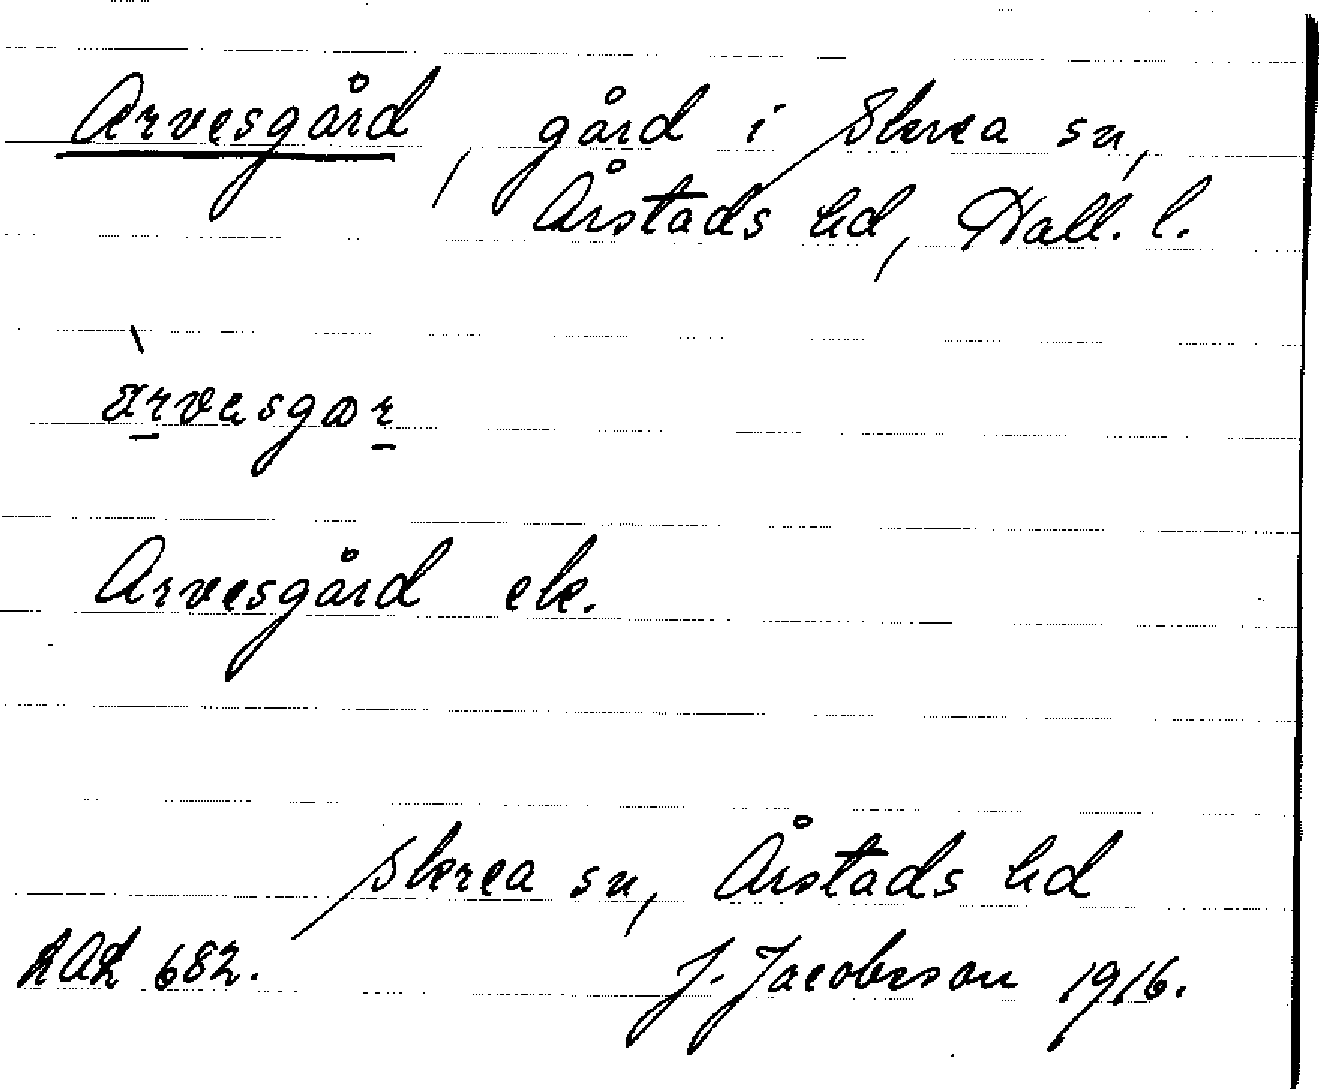 Arvesgård, gård i Skrea sn,
Årstads hd, Hall. l.
Arvesgård ek.
Skrea sn, Årstads hd
682.
J. Jacobsson 1916.